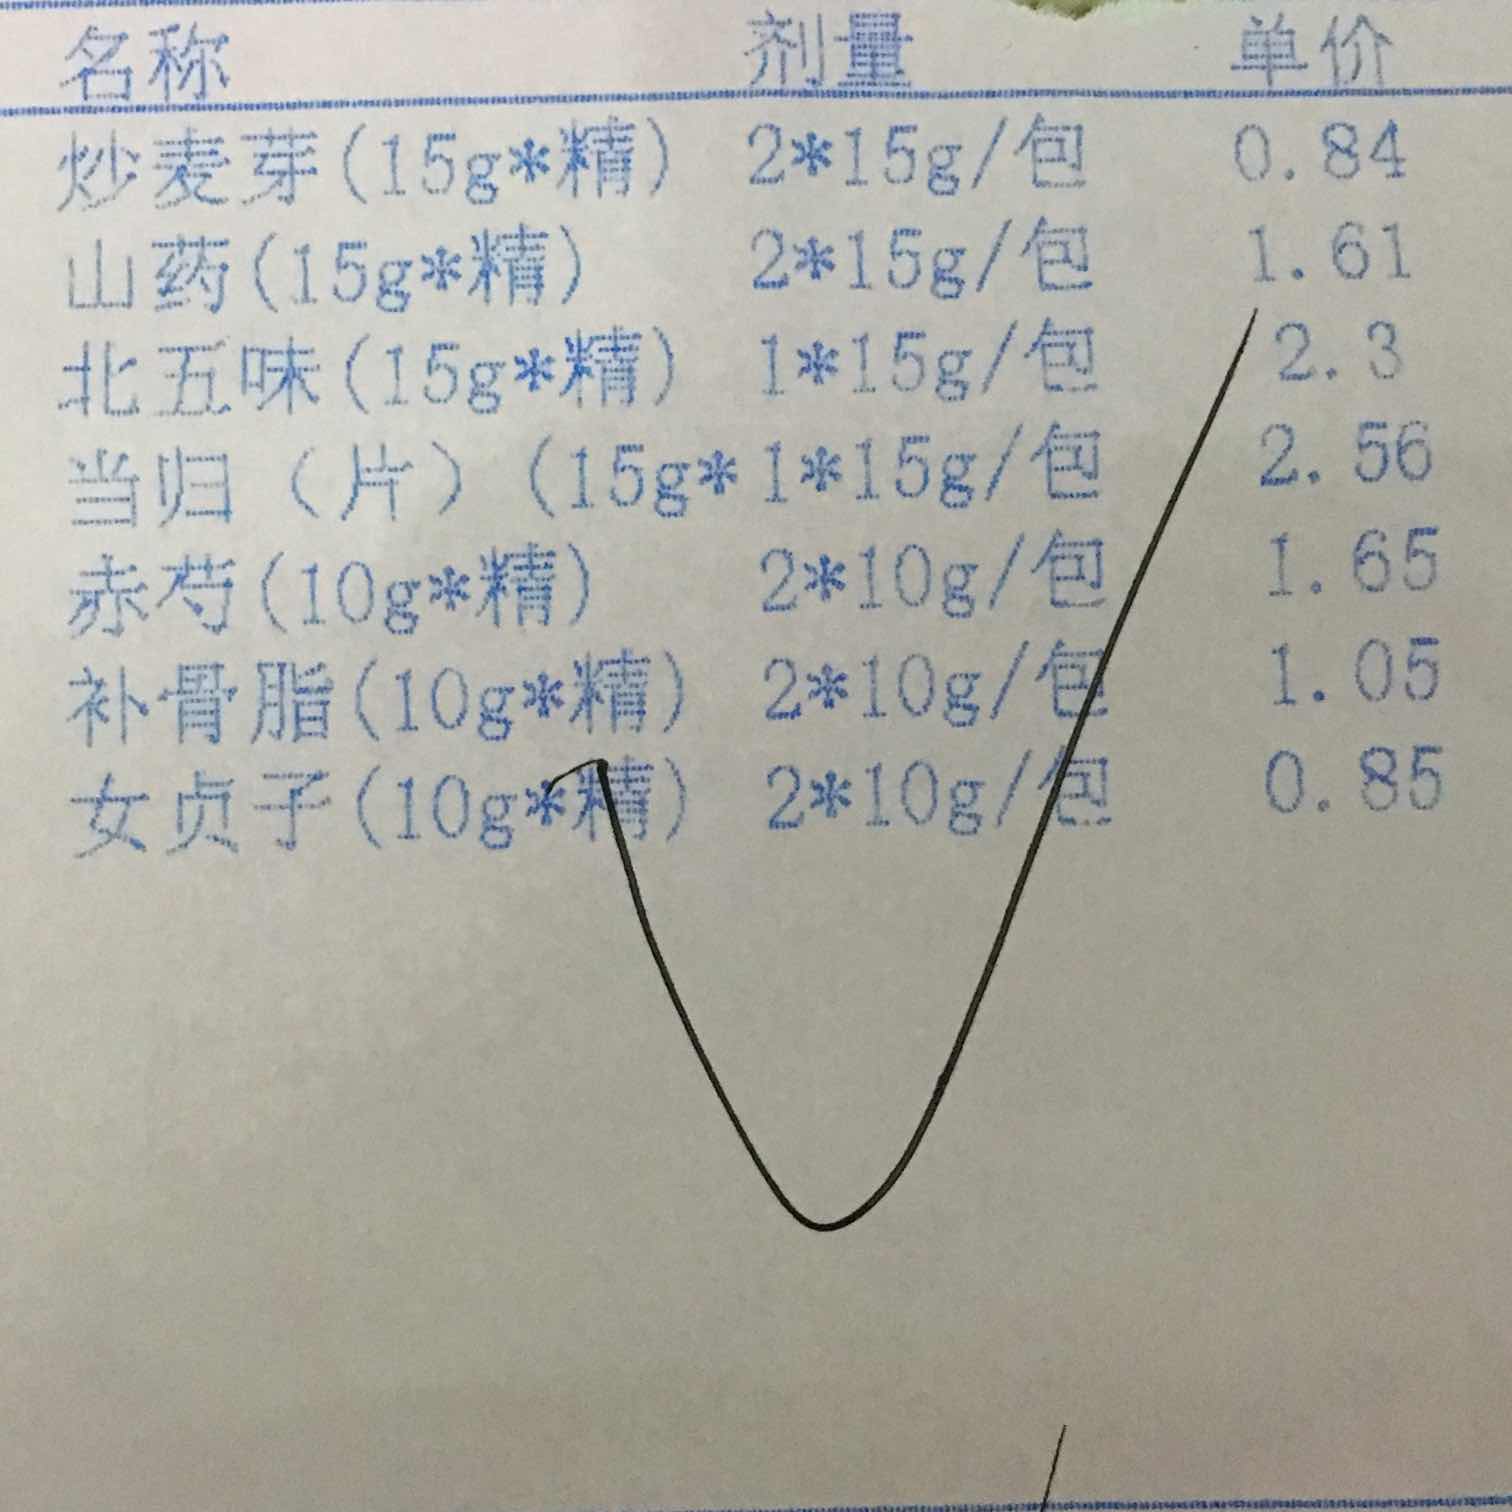 名称 剂量 单价
炒麦芽(15g*精) 2*15g/包 0.84
山药(15g*精) 2*15g/包 1.61
北五味(15g*精) 1*15g/包 2.3
当归（片）(15g* 1*15g/包 2.56
赤芍(10g*精) 2*10g/包 1.65
补骨脂(10g*精) 2*10g/包 1.05
女贞子(10g*精) 2*10g/包 0.85